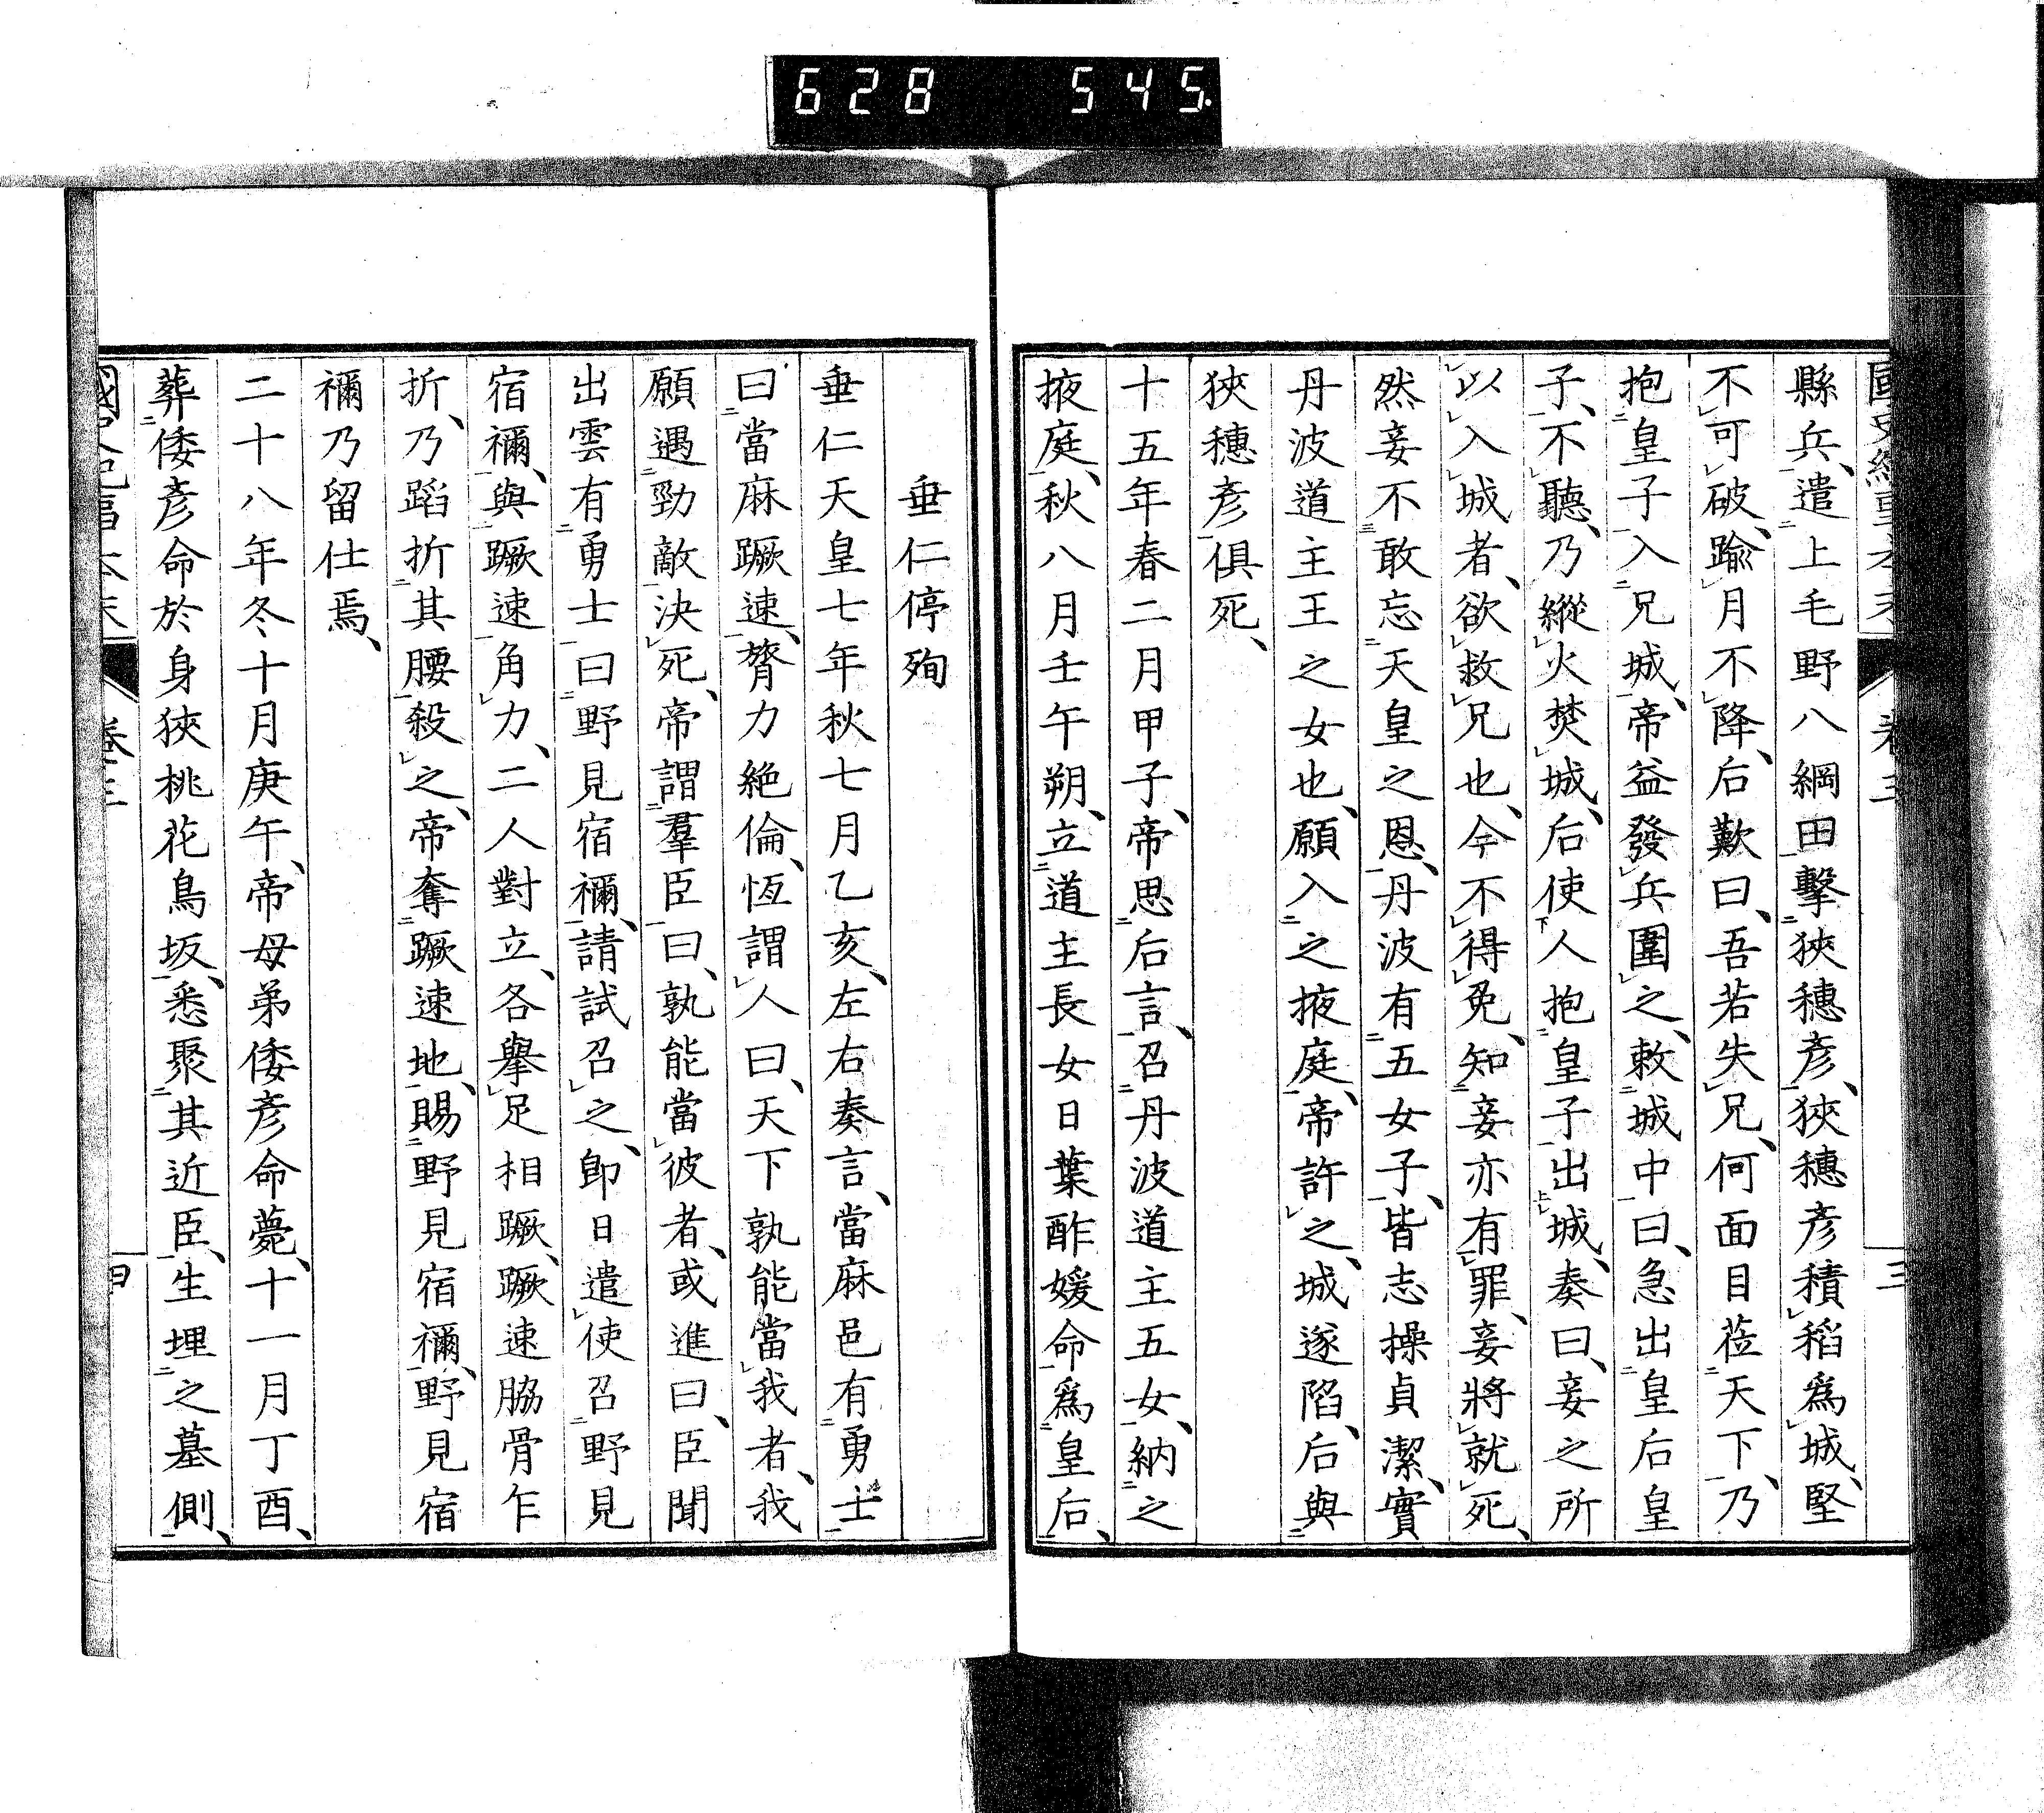 628 545.
縣兵、遣上毛野八綱田擊狹穗彥、狹穗彥積稻爲城、堅
不可破、踰月不降、后歎曰、吾若失兄、何面目莅天下、乃
抱皇子入兄城、帝益發兵圍之、敕城中曰、急出皇后皇
子、不聽、乃縱火焚城、后使人抱皇子出城、奏曰、妾之所
以入城者、欲救兄也、今不得免、知妾亦有罪、妾將就死、
然妾不敢忘天皇之恩、丹波有五女子、皆志操貞潔、實
丹波道主王之女也、願入之掖庭、帝許之、城遂陷、后與
狹穗彥俱死、
十五年春二月甲子、帝思后言、召丹波道主五女、納之
掖庭、秋八月壬午朔、立道主長女日葉酢媛命爲皇后、
垂仁停殉
垂仁天皇七年秋七月乙亥、左右奏言、當麻邑有勇士
曰當麻蹶速、膂力絶倫、恆謂人曰、天下孰能當我者、我
願遇勁敵決死、帝謂羣臣曰、孰能當彼者、或進曰、臣聞
出雲有勇士曰野見宿禰、請試召之、卽日遣使召野見
宿禰、與蹶速角力、二人對立、各擧足相蹶、蹶速脇骨乍
折、乃蹈折其腰殺之、帝奪蹶速地、賜野見宿禰、野見宿
禰乃留仕焉、
二十八年冬十月庚午、帝母弟倭彥命薨、十一月丁酉、
葬倭彥命於身狹桃花鳥坂、悉聚其近臣、生埋之墓側、
卷三